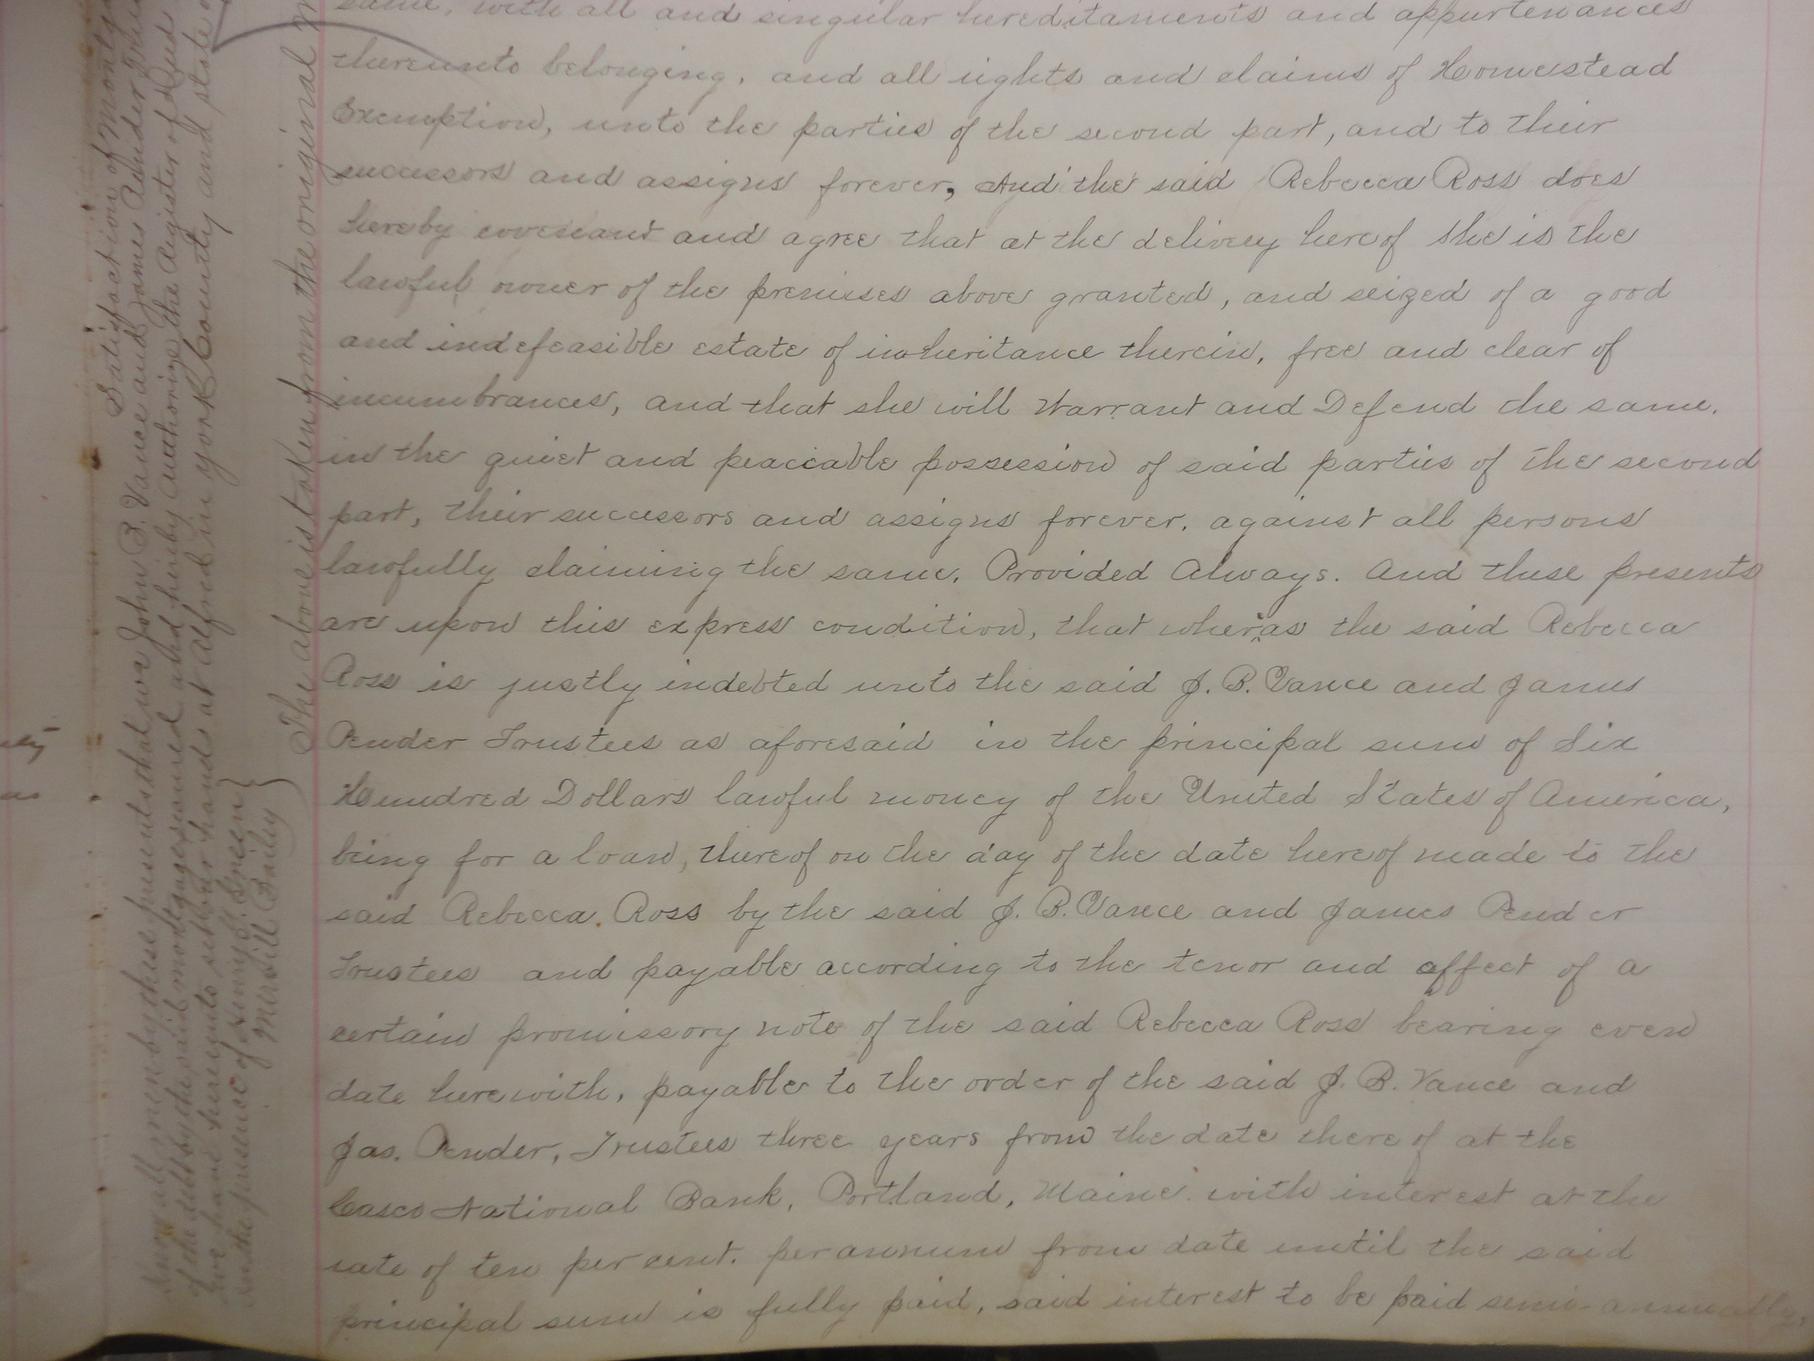 same, with all and singular hereditaments and appurtenances
thereunto belonging, and all rights and claims of Homestead
Exemption, unto the parties of the second part, and to their
successors and assigns forever, And the said Rebecca Ross does
hereby covenant and agree that at the delivery hereof she is the
lawful owner of the premises above granted, and seized of a good
and indefeasible estate of inheritance therein, free and clear of
incumbrances, and that she will Warrant and Defend the same.
in the quiet and peaceable possession of said parties of the second
part, their successors and assigns forever. against all persons
lawfully claiming the same. Provided Always. And these presents
are upon this express condition, that whereas the said Rebecca
Ross is justly indebted unto the said J. B. Vance and James
Pender Trustees as aforesaid in the principal sum of Six
Hundred Dollars lawful money of the United States of America,
being for a loan, thereof on the day of the date hereof made to the
said Rebecca Ross by the said J. B. Vance and James Pender
Trustees and payable according to the tenor and affect of a
certain promissory note of the said Rebecca Ross bearing even
date herewith, payable to the order of the said J. B. Vance and
Jas. Pender, Trustees three years from the date there of at the
Casco National Bank, Portland, Maine. with interest at the
rate of ten per cent. per annum from date until the said
principal sum is fully paid, said interest to be paid semi-annually,
The above is taken from the original
Satisfaction of
Know all men by these presents that we John B. Vance and James Pender
of the debt by the said mortgage secured and hereby authorize the Register of
we have hereunto set our hands at Alfred in York County and state
In the presence of Henry S. Green
Merrill Bailey